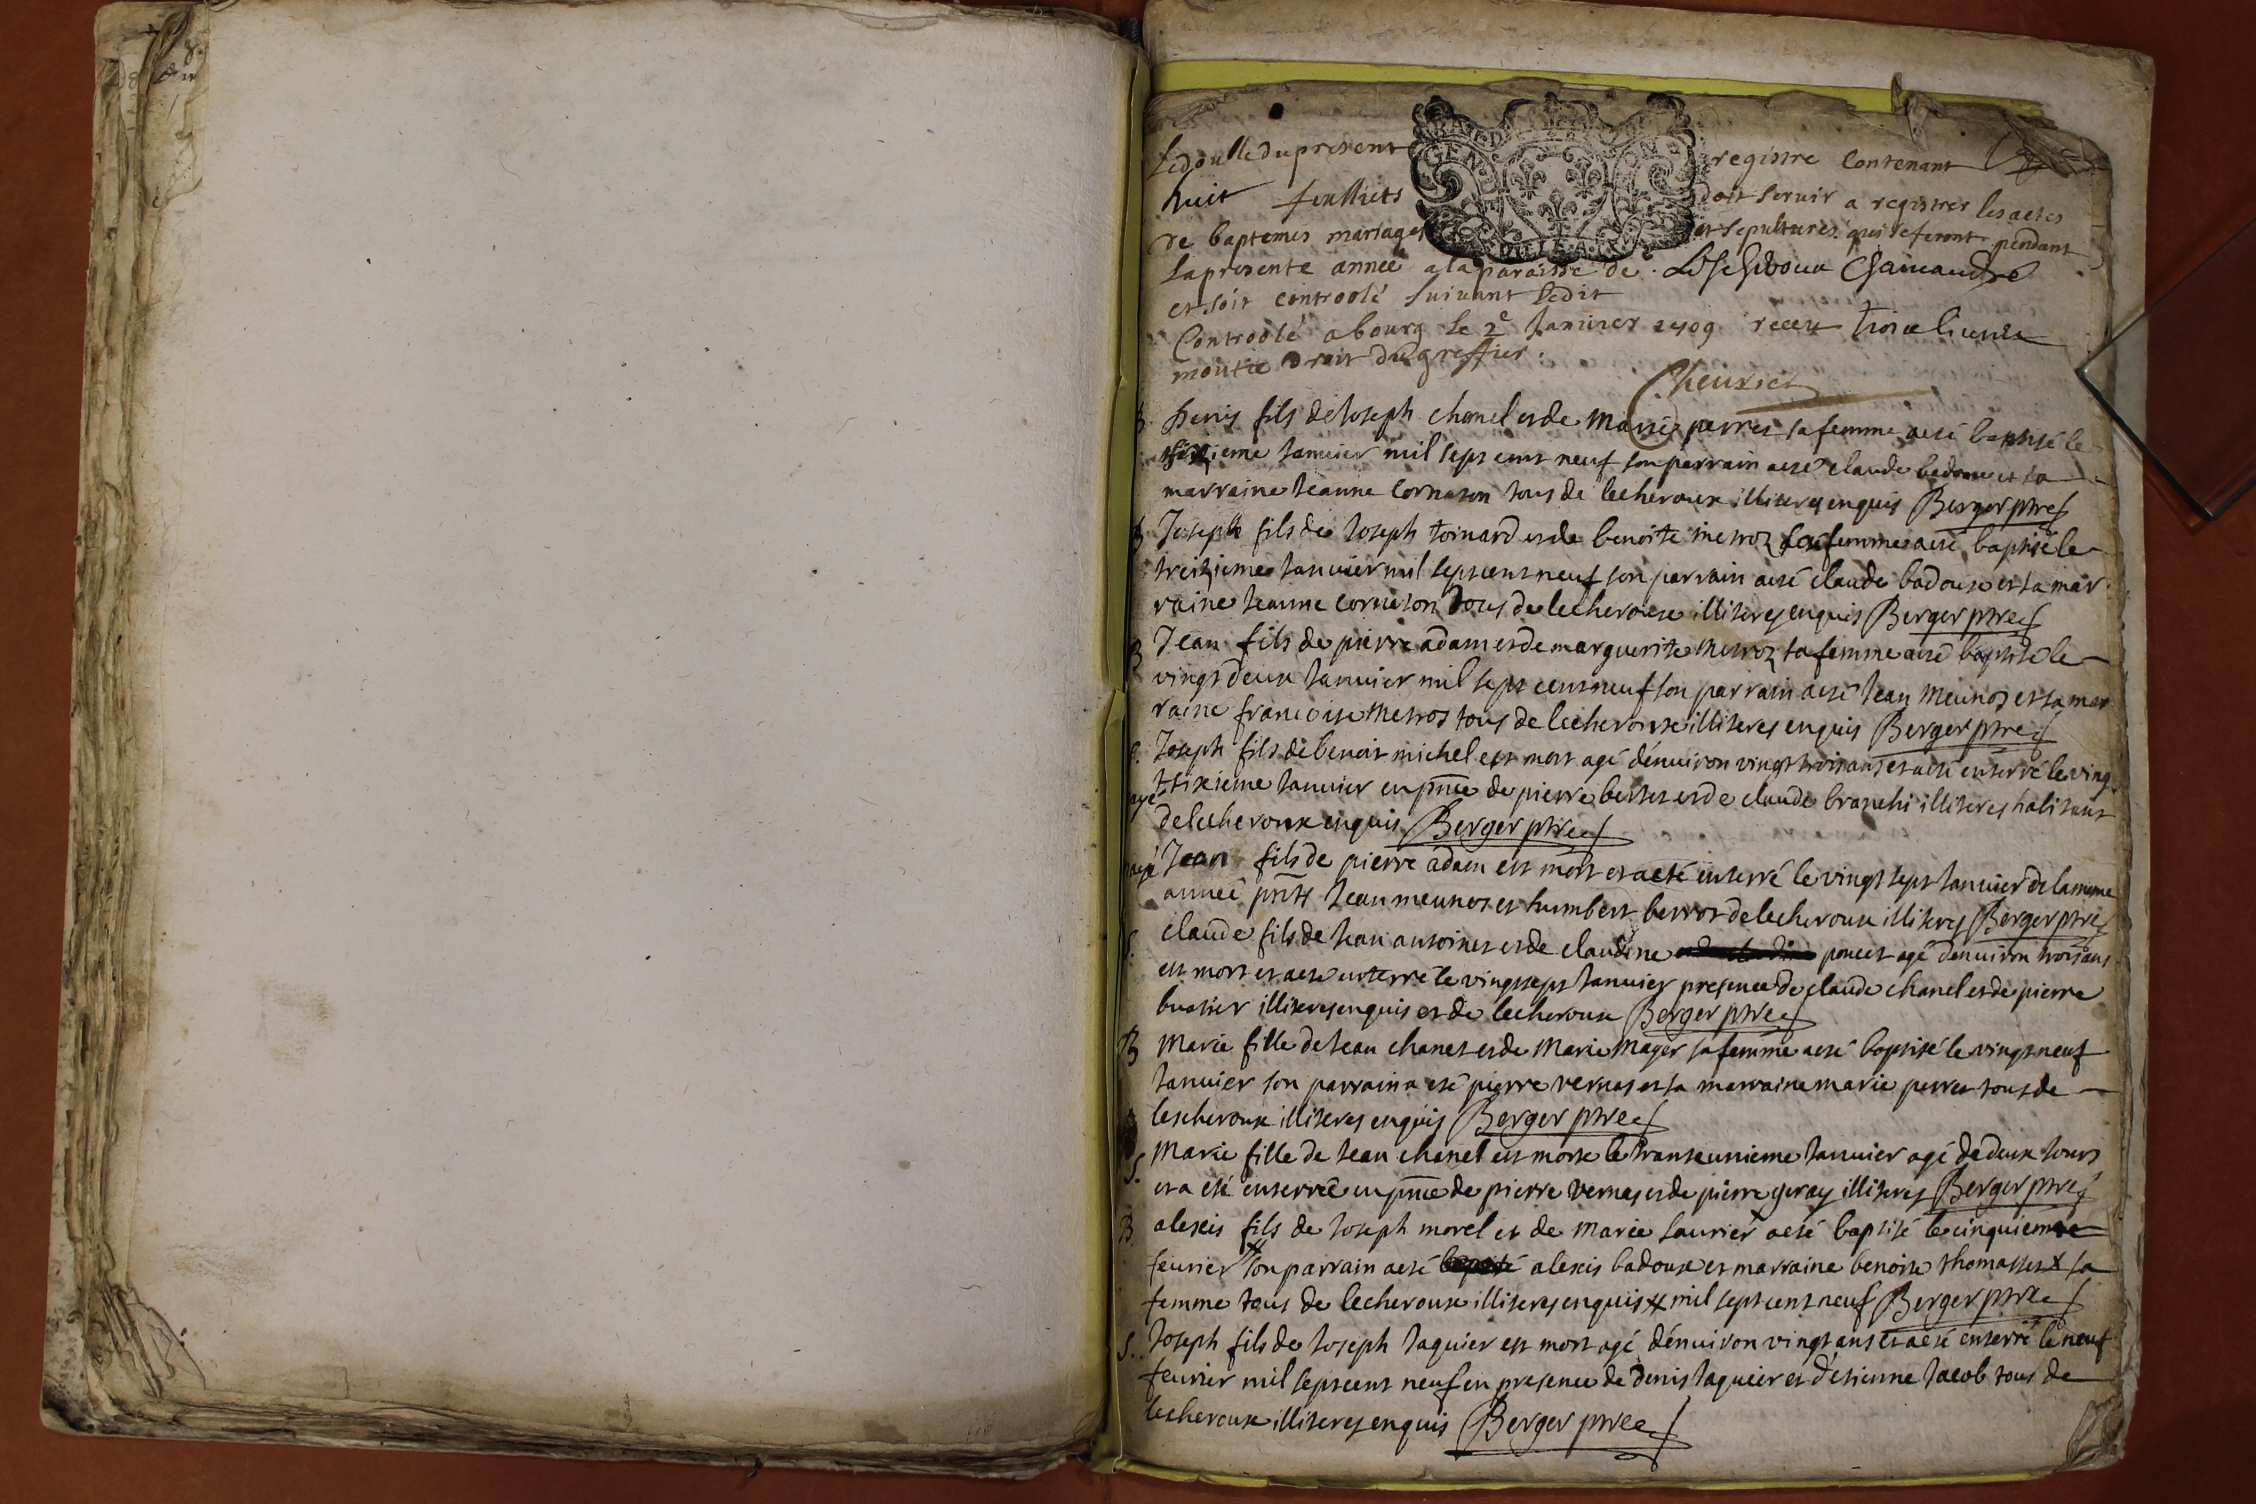 Le double du present registre contenant
huit feulliets doit servir a registrer les actes
de baptemes mariages et sepultures qui se feront pendant
la presente année a la paroisse de
et soit controolé suivant ledit
Controolé a bourg le 2e Janvier 1709 receu trois livres
moitie droit du greffier.
Cheurier
B Denis fils de Joseph chanel et de Marie perret sa femme a esté baptisé le
sixieme Janvier mil sept cent neuf son parrain a esté claude badoux et sa
marraine Jeanne cornaton tous de lecheroux illiteres enquis Berger ptre
B Joseph fils de Joseph toinard et de benoite metroz sa femme a esté baptisé le
treizieme Janvier mil sept cent neuf son parrain a esté claude badoux et sa mar
raine Jeanne corneton tous de lecheroux illiteres enquis Berger ptre
B Jean fils de pierre adam et de marguerite metroz sa femme a esté baptisé le
vingt deux Janvier mil sept cent neuf son parrain a esté Jean meunos et sa mar
raine francoise metros tous de lecheroux illiteres enquis Berger ptre
S. Joseph fils de benoit michel est mort agé d'enuiron vingt trois ans et a esté enterré le ving
t sixieme Janvier en pnce de pierre bertet et de claude branchi illiteres habitans
de lecheroux enquis Berger ptre
Jean fils de pierre adam est mort et a eté enterré le vingt sept Janvier de la meme
année pnts Jean meunos et humbert berrod de lecheroux illiteres Berger ptre
S. claude fils de Jean antoinet et de claudine poncet agé d'enuiron trois ans
est mort et a esté enterré le vingt sept Janvier presence de claude chanel et de pierre
buatier illiteres enquis et de lecheroux Berger ptre
B Marie fille de Jean chanel et de Marie Mager sa femme a esté baptisé le vingt neuf
Janvier son parrain a eté pierre vernas et sa marraine marie perret tous de
lescheroux illiteres enquis Berger ptre
S. Marie fille de Jean chanel est morte le trante unieme Janvier agé de deux Jours
et a eté enterreé en pnce de pierre vernas et de pierre geray illiteres Berger ptre
B alexis fils de Joseph morel et de Marie laurier a esté baptisé le cinquieme
feurier # son parrain a esté alexis badoux et marraine benoite thomasset x sa
femme tous de lecheroux illiteres enquis # mil sept cent neuf Berger ptre
S. Joseph fils de Joseph Jaquier est mort agé d'enuiron vingt ans et a esté enterré le neuf
feurier mil sept cent neuf en presence de denis Jaquier et d'etienne Jacob tous de
lecheroux illiteres enquis Berger ptre